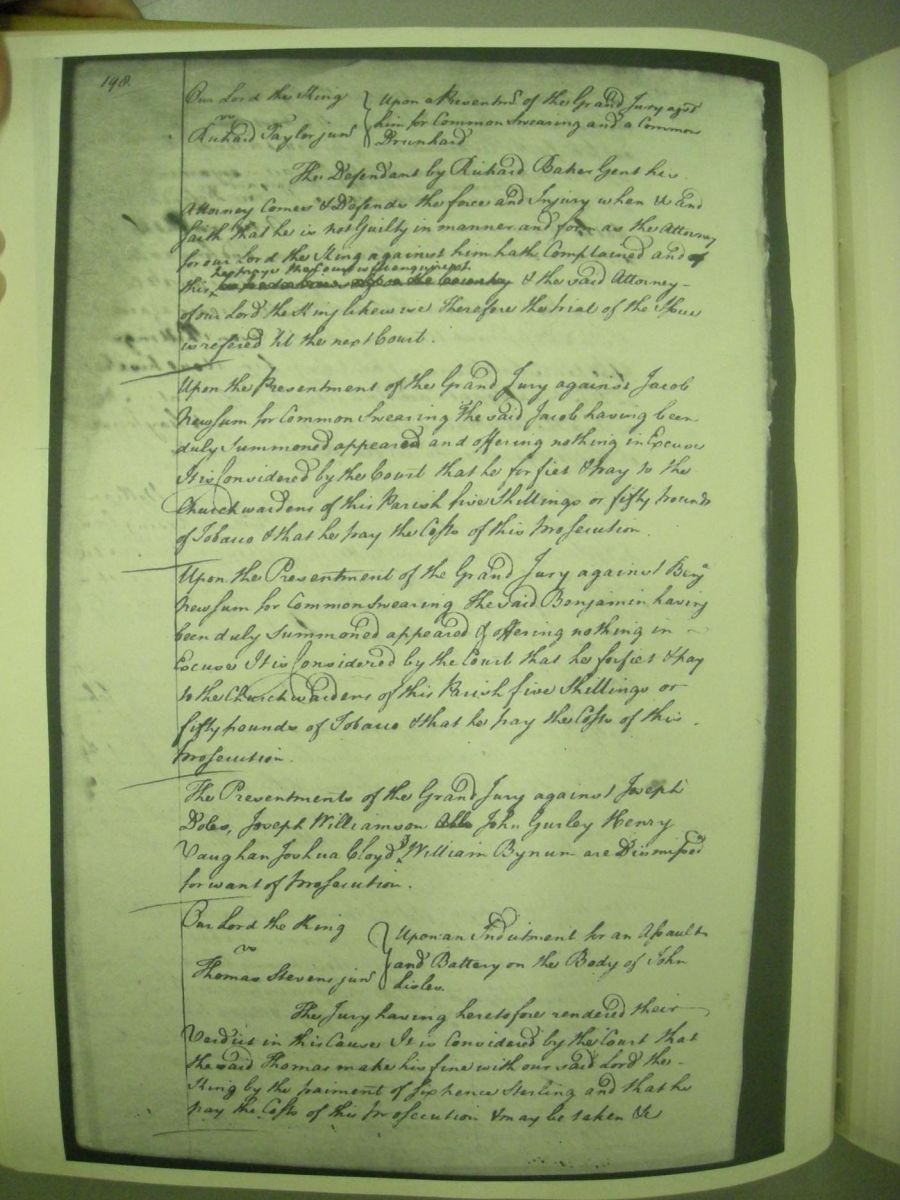 198.
Our Lord the King
vs
Richard Taylor junr
Upon a Presentmt. of the Grand Jury agst
him for Common Swearing and a Common
Drunkard
The Defendant by Richard Baker Gent his
Attorney Comes & Defends the force and Injury when &c and
saith that he is not Guilty in manner and form as the Attorney
for our Lord the King against him hath Complained and of
this he prays the Court
& the said Attorney
of our Lord the King likewise Therefore the trial of the Issue
is refered 'til the next Court.
Upon the Presentment of the Grand Jury against Jacob
Newsum for Common Swearing The said Jacob having been
duly Summoned appeared and offering nothing in Excuse
It is Considered by the Court that he forfiet & pay to the
Churchwardens of this Parish five Shillings or fifty pounds
of Tobacco & that he pay the Costs of this Prosecution.
Upon the Presentment of the Grand Jury against Benja
Newsum for Common Swearing The said Benjamin having
been duly Summoned appeared & offering nothing in
Excuse It is Considered by the Court that he forfiet & pay
to the Churchwardens of this Parish five Shillings or
fifty pounds of Tobacco & that he pay the Costs of this
Prosecution.
The Presentments of the Grand Jury against Joseph
Doles, Joseph Williamson John Gurley Henry
Vaughan Joshua Cloyd & William Bynum are Dismissed
for want of Prosecution.
Our Lord the King
vs
Thomas Stevens junr
Upon an Indictment for an Assault
and Battery on the Body of John
Lisles.
The Jury having heretofore rendered their
Verdict in this Cause It is Considered by the Court that
the said Thomas make his fine with our said Lord the
King by the paiment of Sixpence Sterling and that he
pay the Costs of this Prosecution & may be taken &c